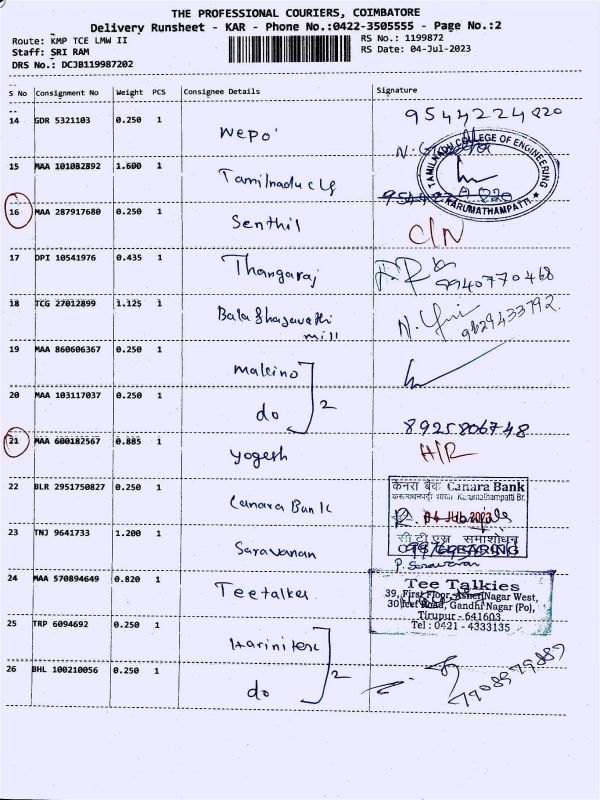 THE PROFESSIONAL COURIERS, COIMBATORE
Delivery Runsheet - KAR - Phone No.:0422-3505555 - Page No.:2
Route: KMP TCE LMW II RS No.: 1199872
Staff: SRI RAM RS Date: 04-Jul-2023
DRS No.: DCJB119987202
S No Consignment No Weight PCS Consignee Details Signature
14 GDR 5321103 0.250 1 Wepo 9544224820
15 MAA 101082892 1.600 1 Tamilnadu clg
TAMILNADU COLLEGE OF ENGINEERING
KARUMATHAMPATTI
16 MAA 287917680 0.250 1 Senthil C/N
17 DPI 10541976 0.435 1 Thangaraj 9940770468
18 TCG 27012899 1.125 1 Bala Bhagavathi mill N. 9629433792
19 MAA 860606367 0.250 1 makino
20 MAA 103117037 0.250 1 do 2
8925806748
21 MAA 600182567 0.885 1 yogesh H/R
22 BLR 2951750827 0.250 1 Canara Bank
केनरा बैंक Canara Bank
करुमत्थमपट्टी शाखा Karumathampatti Br.
04 JUL 2023
सी टी एस समाशोधन
CTS CLEARING
23 TNJ 9641733 1.200 1 Saravanan P. Saravanan
24 MAA 570894649 0.820 1 Tee talkes
Tee Talkies
39, First Floor, Asher Nagar West,
30 feet Road, Gandhi Nagar (Po),
Tirupur - 641603.
Tel : 0421 - 4333135
25 TRP 6094692 0.250 1 Harini
26 BHL 100210056 0.250 1 do 2